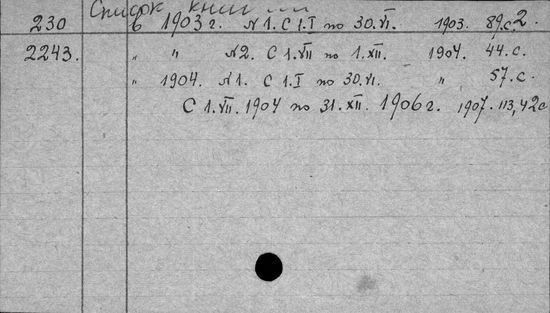 Список книг
230 в 1903 г. N 1. С 1.I по 30.VI. 1903. 89.с.2.
2243. " " N2. С 1.VII по 1.XII. 1904. 44.с.
" 1904. N1. С 1.I по 30.VI. " 57.с.
С 1.VII.1904 по 31.XII. 1906 г. 1907. 113,42с